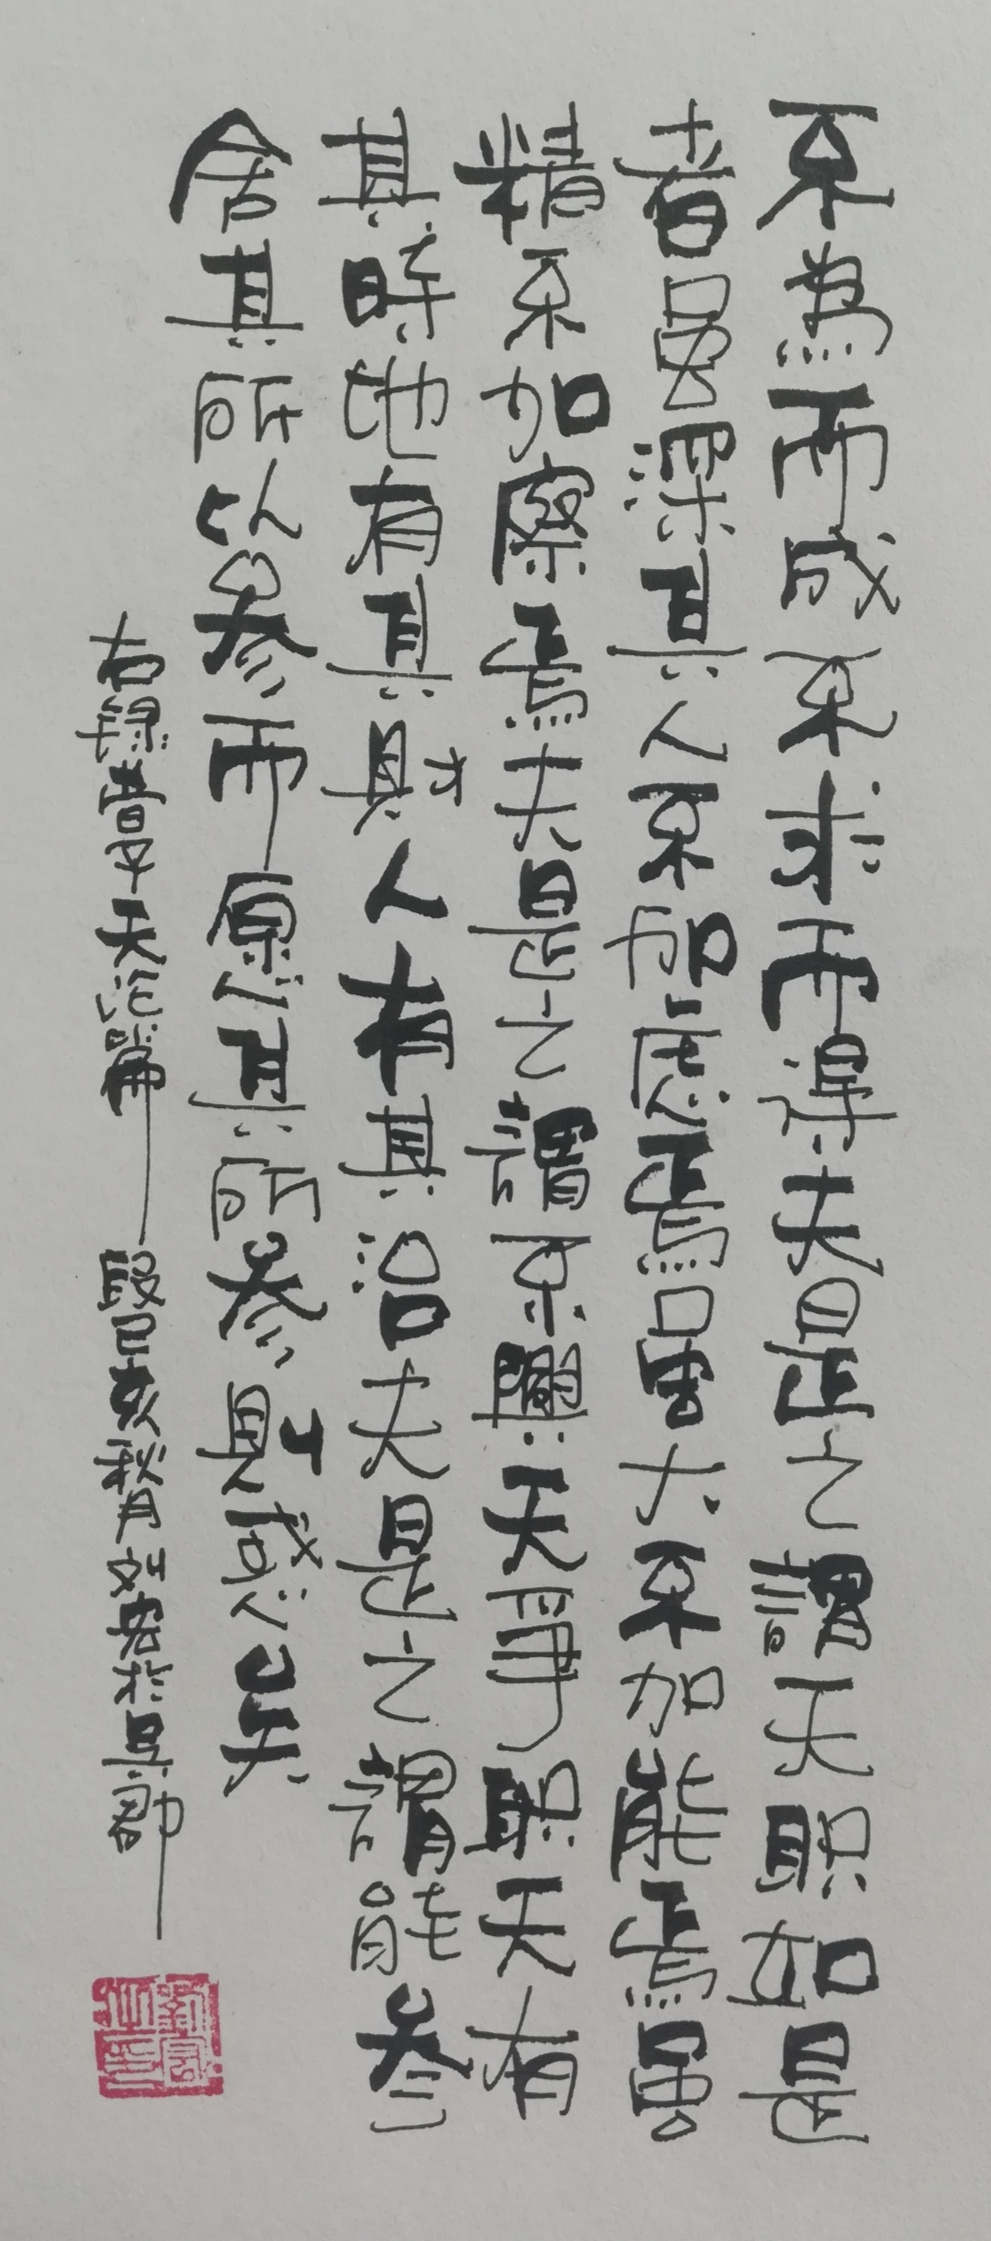 不為而成不求而得夫是之謂天职如是
者虽深其人不加慮焉雖大不加能焉雖
精不加察焉夫是之謂不與天爭职天有
其時地有其財人有其治夫是之謂能参
舍其所以参而願其所参則惑矣
右録荀子天论篇 歲己亥秋月 於吴郡